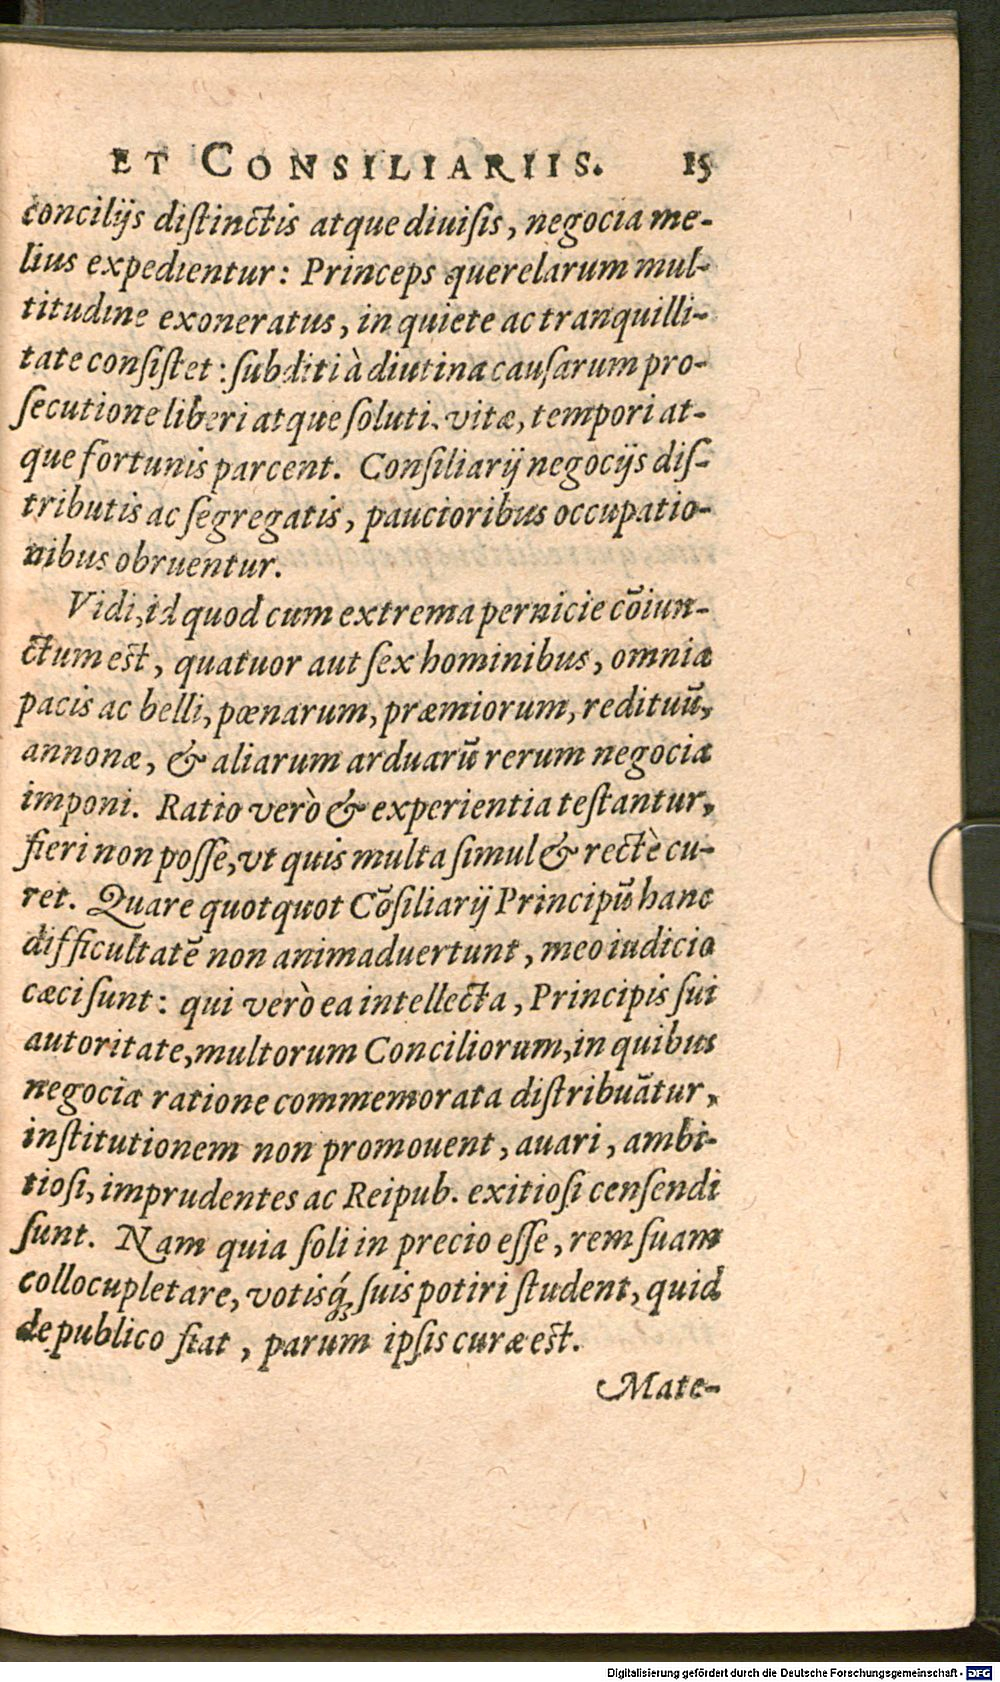 ET CONSILIARIIS. 15
concilijs diſtinctis atque diuiſis, negocia me-
lius expedientur: Princeps querelarum mul-
titudine exoneratus, in quiete ac tranquilli-
tate conſiſtet: ſubditi à diutina cauſarum pro-
ſecutione liberi atque ſoluti, vitæ, tempori at-
que fortunis parcent. Conſiliarij negocijs diſ-
tributis ac ſegregatis, paucioribus occupatio-
nibus obruentur.
Vidi, id quod cum extrema pernicie cõiun-
ctum est, quatuor aut ſex hominibus, omnia
pacis ac belli, pœnarum, præmiorum, redituũ,
annonæ, & aliarum arduarũ rerum negocia
imponi. Ratio verò & experientia teſtantur,
fieri non poſſe, vt quis multa ſimul & rectè cu-
ret. Quare quotquot Cõſiliarij Principũ hanc
difficultatẽ non animaduertunt, meo iudicio
cæci ſunt: qui verò ea intellecta, Principis ſui
autoritate, multorum Conciliorum, in quibus
negocia ratione commemorata diſtribuãtur,
inſtitutionem non promouent, auari, ambi-
tioſi, imprudentes ac Reipub. exitioſi cenſendi
ſunt. Nam quia ſoli in precio eſſe, rem ſuam
collocupletare, votisq́; ſuis potiri ſtudent, quid
de publico fiat, parum ipſis curæ est.
Mate-
Digitalisierung gefördert durch die Deutsche Forschungsgemeinschaft - DFG